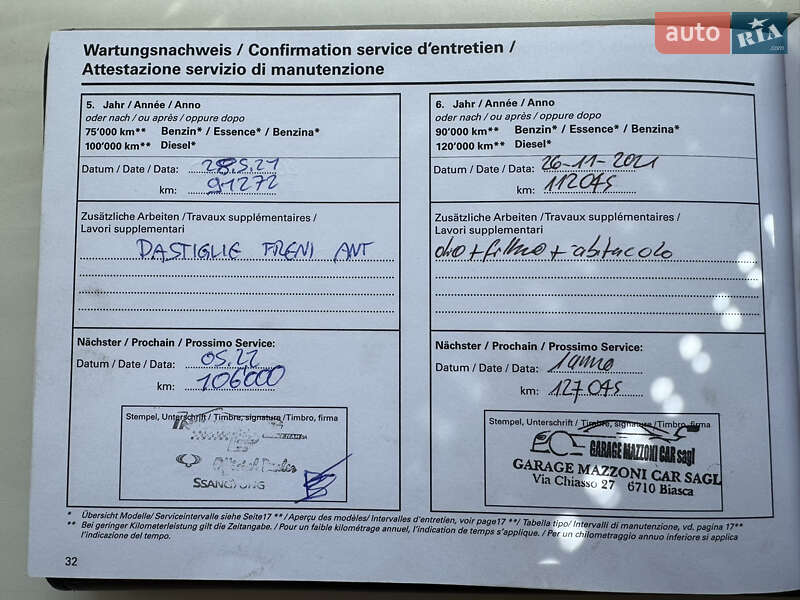 auto RIA.com
Wartungsnachweis / Confirmation service d'entretien /
Attestazione servizio di manutenzione
5. Jahr / Année / Anno
oder nach / ou après / oppure dopo
75'000 km** Benzin* / Essence* / Benzina*
100'000 km** Diesel*
Datum / Date / Data: 28.5.21
km: 91272
Zusätzliche Arbeiten / Travaux supplémentaires /
Lavori supplementari
PASTIGLIE FRENI ANT
Nächster / Prochain / Prossimo Service:
Datum / Date / Data: 05.22
km: 106000
Stempel, Unterschrift / Timbre, signature / Timbro, firma
Official Dealer
SSANGYONG
6. Jahr / Année / Anno
oder nach / ou après / oppure dopo
90'000 km** Benzin* / Essence* / Benzina*
120'000 km** Diesel*
Datum / Date / Data: 26-11-2021
km: 112045
Zusätzliche Arbeiten / Travaux supplémentaires /
Lavori supplementari
olio + filtro + abitacolo
Nächster / Prochain / Prossimo Service:
Datum / Date / Data: 1anno
km: 127045
Stempel, Unterschrift / Timbre, signature / Timbro, firma
GARAGE MAZZONI CAR sagl
GARAGE MAZZONI CAR SAGL
Via Chiasso 27 6710 Biasca
* Übersicht Modelle/ Serviceintervalle siehe Seite17 ** / Aperçu des modèles/ Intervalles d'entretien, voir page17 **/ Tabella tipo/ Intervalli di manutenzione, vd. pagina 17**
** Bei geringer Kilometerleistung gilt die Zeitangabe. / Pour un faible kilométrage annuel, l'indication de temps s'applique. / Per un chilometraggio annuo inferiore si applica
l'indicazione del tempo.
32